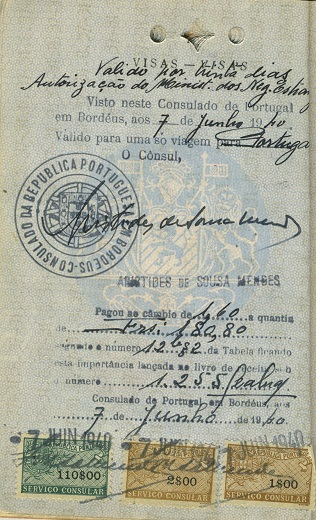 VISAS — VISAS
Valido por trinta dias
Autorização do Minist. dos Neg. Estrang
Visto neste Consulado de Portugal
em Bordéus, aos 7 de Junho 1940
Valido para uma só viagem para Portugal
O Cônsul,
CONSULADO DA REPUBLICA PORTUGUESA EM BORDEUS
Aristides de Sousa Mendes
ARISTIDES DE SOUSA MENDES
Pagou ao câmbio de 1,60 a quantia
de Frs. 180,80
segundo o número 12 da Tabela ficando
esta importância lançada no livro de receitas sob
o número 1255
Consulado de Portugal em Bordéus, aos
7 de Junho de 1940
7 JUIN 1940
110$00
2$00
1$00
SERVIÇO CONSULAR
SERVIÇO CONSULAR
SERVIÇO CONSULAR